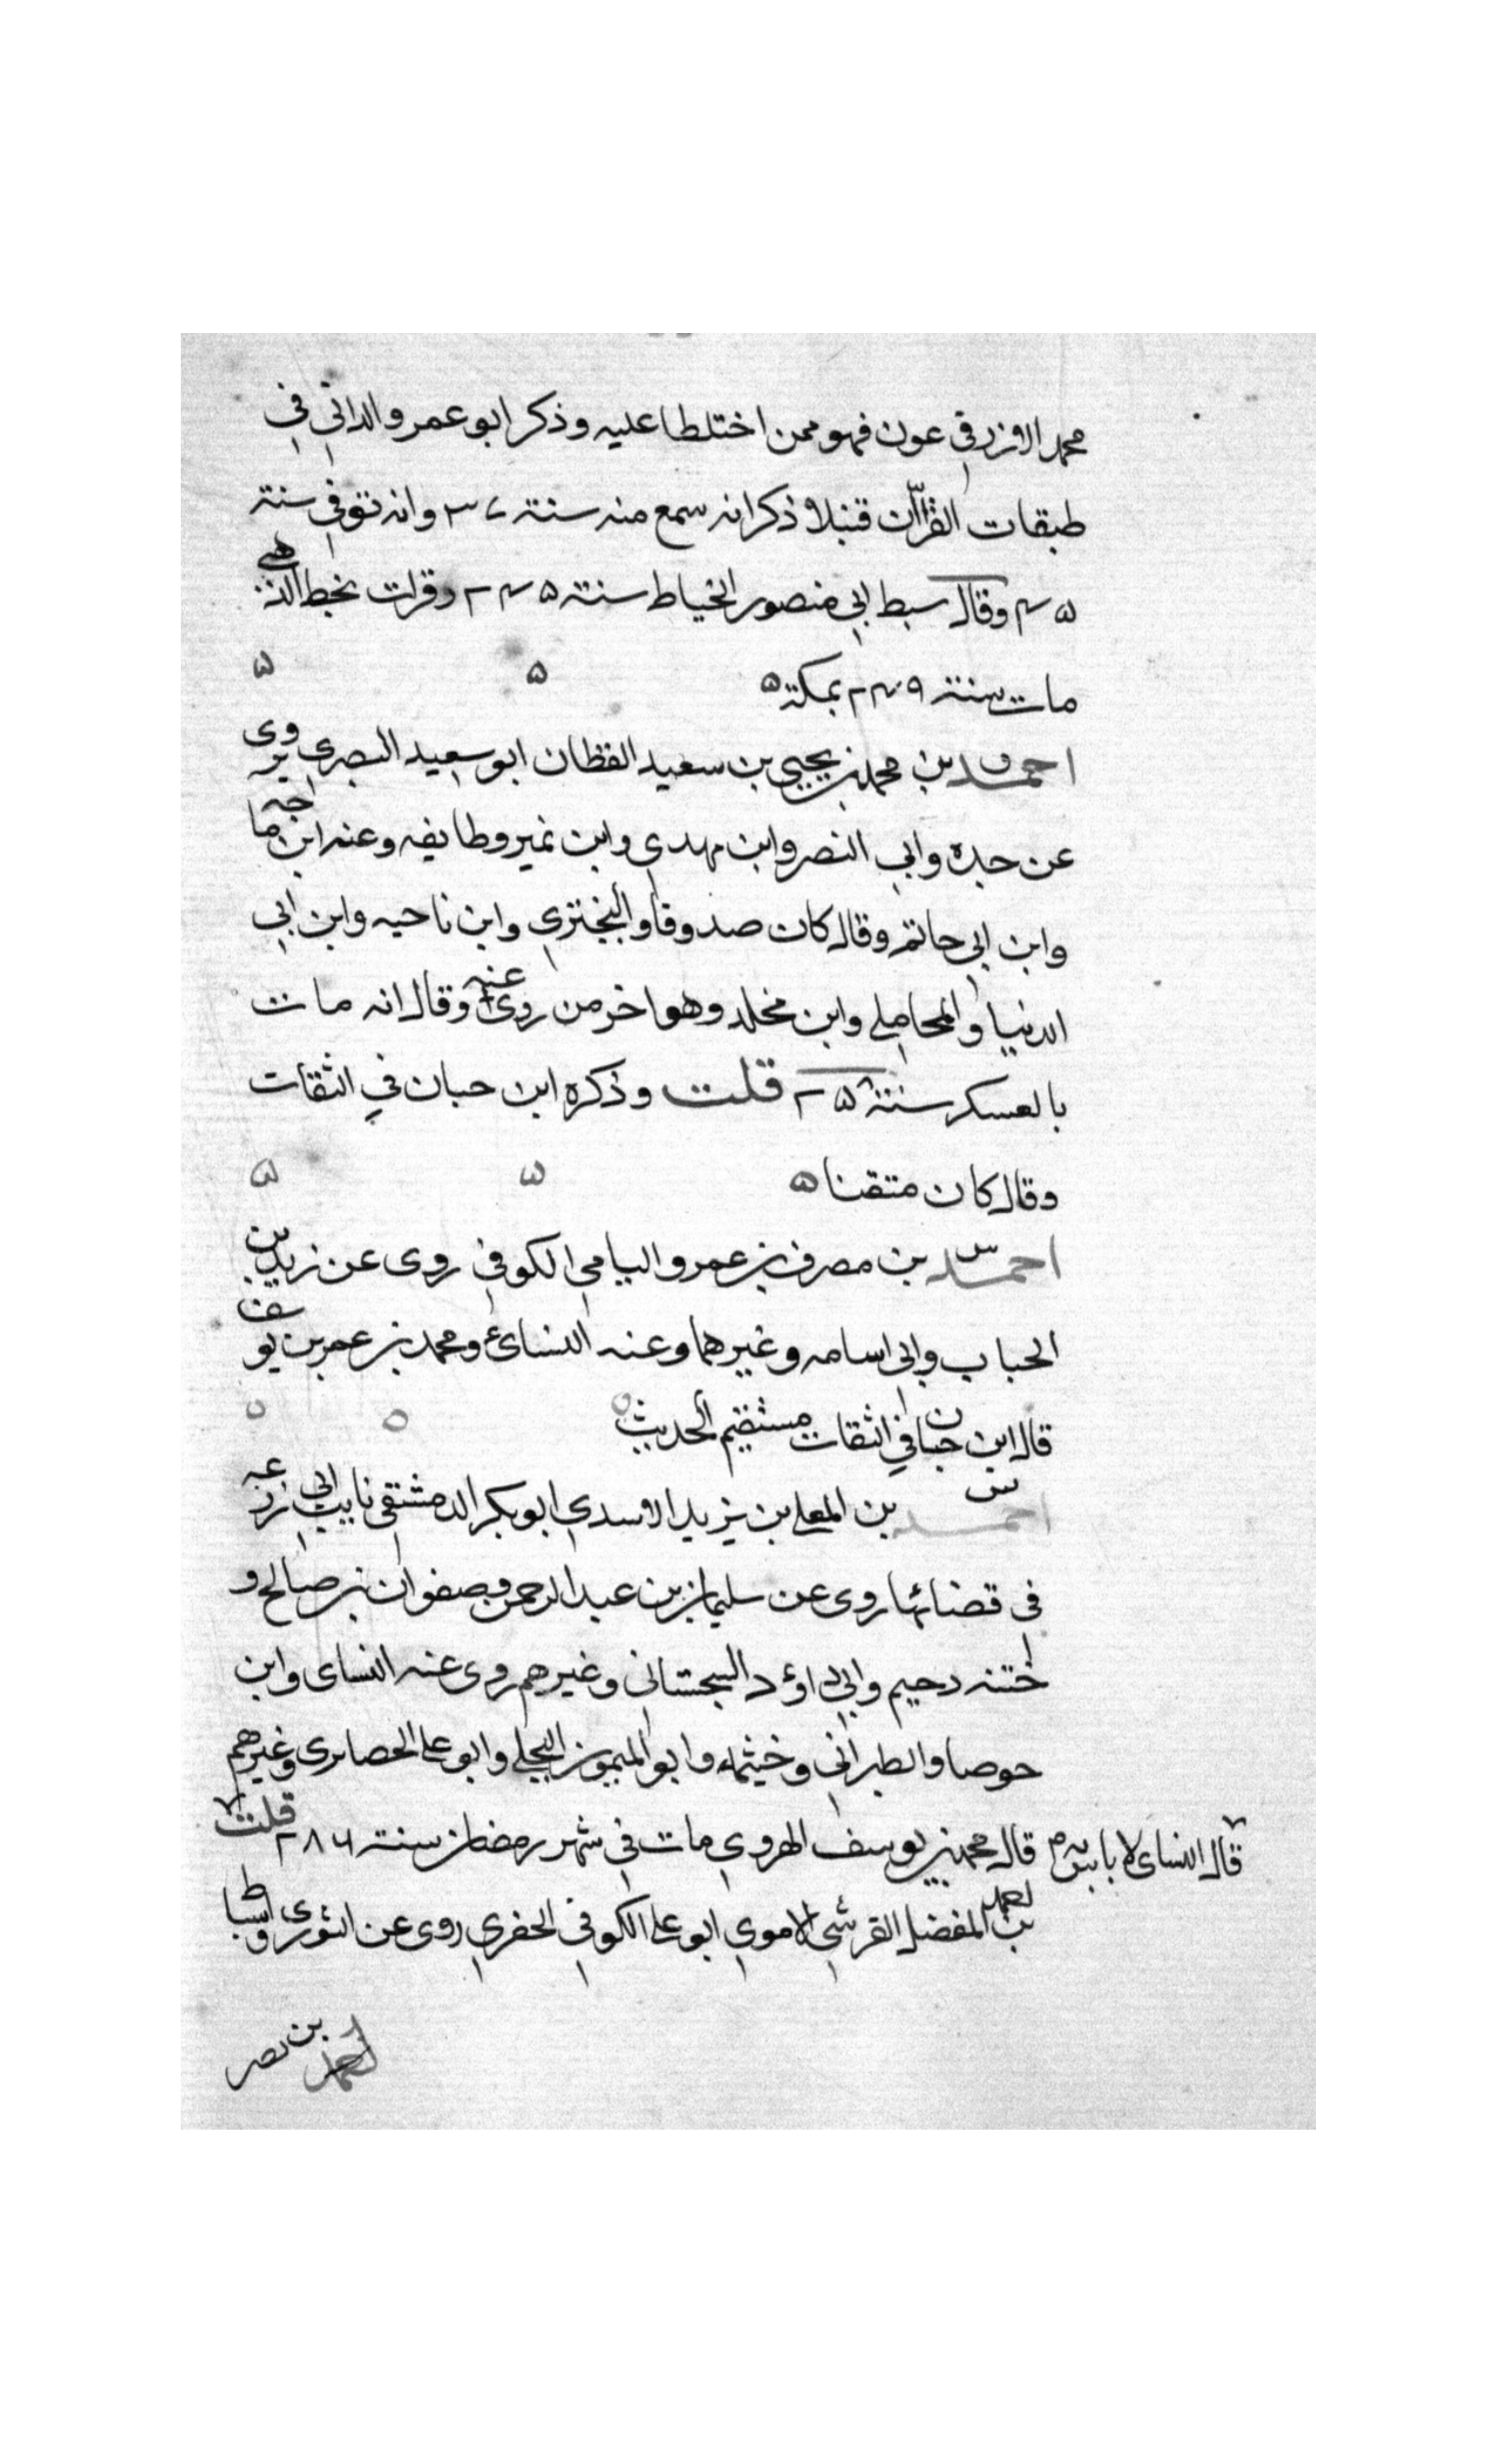 محمد الازرقي عون فهو ممن اختلطا عليه وذكر ابو عمرو الداني في
طبقات القراان قنبلا ذكر انه سمع منه سنة ٣٧ وانه توفي سنة
٤٥ وقال سبط ابي منصور الخياط سنة ٢٤٥ وقرات بخط الذهبي
مات سنة ٢٤٩ بمكة ٥ ٥ ٥
احمد بن محمد بن يحيى بن سعيد القطان ابو سعيد البصري يروى
عن جده وابي النصر وابن مهدي وابن نمير وطايفه وعنه ابن ماجه
وابن ابي حاتم وقال كان صدوقا والبختري وابن ناحيه وابن ابي
الدنيا والمحاملي وابن مخلد وهو اخر من روى عنه وقال انه مات
بالعسكر سنة ٢٥٨ قلت وذكره ابن حبان في الثقات
وقال كان متقنا ٥ ٥ ٥
احمد بن مصرف بن عمرو اليامي الكوفي روى عن زيد بن
الحباب وابي اسامه وغيرهما وعنه النسائي ومحمد بن عمر بن يوسف
قال ابن حبان في الثقات مستقيم الحديث ٥ ٥ ٥
احمد بن المعلى بن يزيد الاسدي ابو بكر الدمشقي نايب ابي زرعه
فى قضائها روى عن سليمان بن عبد الرحمن وصفوان بن صالح و
ختنه دحيم وابي داوٗد السجستاني وغيرهم روى عنه النساى وابن
حوصا والطبراني وخيثمه وابو الميمون البجلي وابو على الحصايرى وغيرهم
قال محمد بن يوسف الهروي مات في شهر رمضان سنة ٢٨٦ قلت
قال النساى لا باس به
احمد بن المفضل القرشي الاموي ابو على الكوفي الحفري روى عن الثوري واسباط
احمد بن نصر